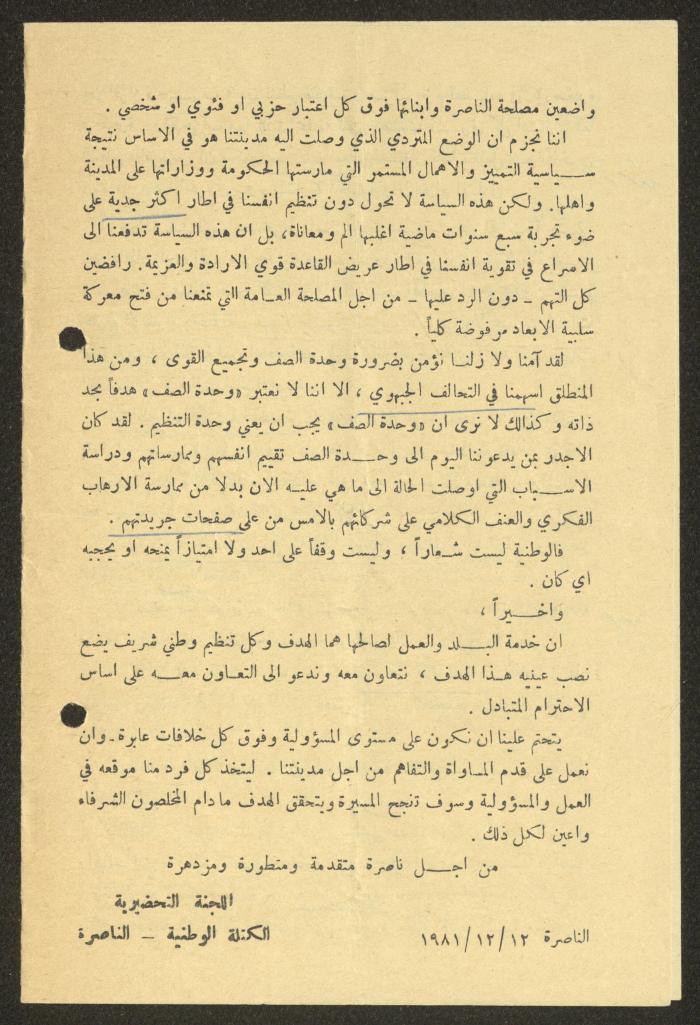 واضعين مصلحة الناصرة وابنائها فوق كل اعتبار حزبي او فئوي او شخصي .
اننا نجزم ان الوضع المتردي الذي وصلت اليه مدينتنا هو في الاساس نتيجة
سياسية التمييز والاهمال المستمر التي مارستها الحكومة ووزاراتها على المدينة
واهلها. ولكن هذه السياسة لا تحول دون تنظيم انفسنا في اطار اكثر جدية على
ضوء تجربة سبع سنوات ماضية اغلبها الم ومعاناة، بل ان هذه السياسة تدفعنا الى
الاسراع في تقوية انفسنا في اطار عريض القاعدة قوي الارادة والعزيمة. رافضين
كل التهم - دون الرد عليها - من اجل المصلحة العامة التي تمنعنا من فتح معركة
سلبية الابعاد مرفوضة كلياً .
لقد آمنا ولا زلنا نؤمن بضرورة وحدة الصف وتجميع القوى ، ومن هذا
المنطلق اسهمنا في التحالف الجبهوي ، الا اننا لا نعتبر «وحدة الصف» هدفاً بحد
ذاته وكذالك لا نرى ان «وحدة الصف» يجب ان يعني وحدة التنظيم . لقد كان
الاجدر بمن يدعوننا اليوم الى وحدة الصف تقييم انفسهم وممارساتهم ودراسة
الاسباب التي اوصلت الحالة الى ما هي عليه الان بدلا من ممارسة الارهاب
الفكري والعنف الكلامي على شركائهم بالامس من على صفحات جريدتهم .
فالوطنية ليست شعاراً ، وليست وقفاً على احد ولا امتيازاً يمنحه او يحجبه
اي كان .
واخيراً ،
ان خدمة البلد والعمل لصالحها هما الهدف وكل تنظيم وطني شريف يضع
نصب عينيه هذا الهدف ، نتعاون معه وندعو الى التعاون معه على اساس
الاحترام المتبادل .
يتحتم علينا ان نكون على مستوى المسؤولية وفوق كل خلافات عابرة - وان
نعمل على قدم المساواة والتفاهم من اجل مدينتنا . ليتخذ كل فرد منا موقعه في
العمل والمسؤولية وسوف تنجح المسيرة ويتحقق الهدف ما دام المخلصون الشرفاء
واعين لكل ذلك .
من اجل ناصرة متقدمة ومتطورة ومزدهرة
اللجنة التحضيرية
الكتلة الوطنية - الناصرة
الناصرة ١٩٨١/١٢/١٢